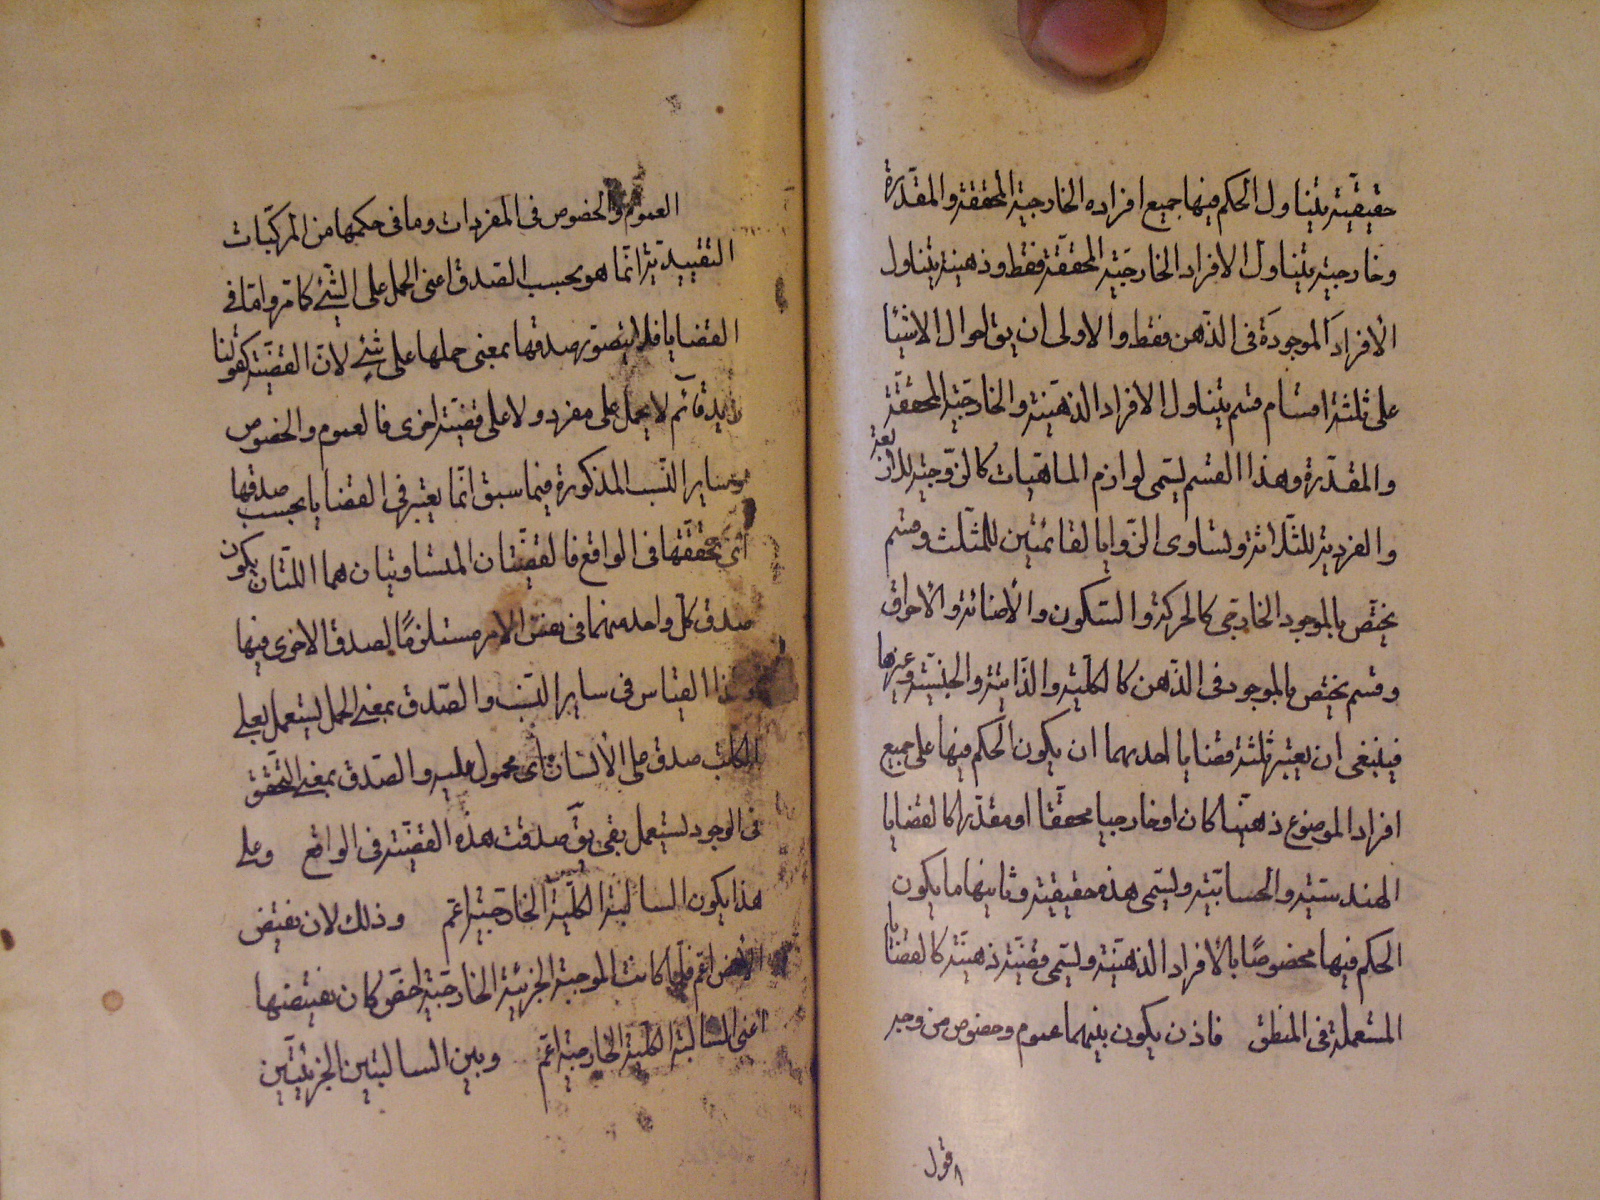 حقيقية يتناول الحكم فيها جميع افراده الخارجية المحققة والمقدرة
وخارجية يتناول الافراد الخارجية المحققة فقط وذهنية يتناول
الافراد الموجودة فى الذهن فقط والاولى ان يق احوال الاشيا
على ثلثة اقسام قسم يتناول الافراد الذهنية والخارجية المحققة
والمقدرة وهذا القسم يسمى لوازم الماهيات كالزوجية للاربعة
والفردية للثلاثة وتساوى الزوايا لقائمتين للمثلث وقسم
يختص بالموجود الخارجى كالحركة والسكون والاضائة والاحراق
وقسم يختص بالموجود فى الذهن كالكلية والذاتية والجنسية وغيرها
فينبغى ان يعتبر ثلثة قضايا احديهما ان يكون الحكم فيها على جميع
افراد الموضوع ذهنيا كان او خارجيا محققا او مقدرا كالقضايا
الهندسية والحسابية وليسمى هذه حقيقية وثانيها ما يكون
الحكم فيها مخصوصًا بالافراد الذهنية وليسمى قضية ذهنية كالقضايا
المستعملة فى المنطق فاذن يكون بينهما عموم وخصوص من وجه
قول
العموم والخصوص فى المفردات وما فى حكمها من المركبات
التقييدية انما هو بحسب الصدق اعنى الحمل على الشئ كما مر واما فى
القضايا فلا يتصور صدقها بمعنى حملها على شئ لان القضية كقولنا
زيد قائم لا يحمل على مفرد ولا على قضية اخرى فالعموم والخصوص
وساير النسب المذكورة فيما سبق انما يعتبر فى القضايا بحسب صدقها
اى تحققها فى الواقع فالقضيتان المتساويتان هما اللتان يكون
صدق كل واحد منهما فى نفس الامر مستلزمًا لصدق الاخرى فيها
وهذا القياس فى ساير النسب والصدق بمعنى الحمل يستعمل بعلى
الكاتب صدق على الانسان اى محمول عليه والصدق بمعنى التحقق
فى الوجود يستعمل بفى يق صدقت هذه القضية فى الواقع وعلى
هذا يكون السالبة الكلية الخارجية اعم وذلك لان نقيض
الاخص اعم فلما كانت الموجبة الجزئية الخارجية اخص كان نقيضها
اعنى السالبة الكلية الخارجية اعم وبين السالبتين الجزئيتين